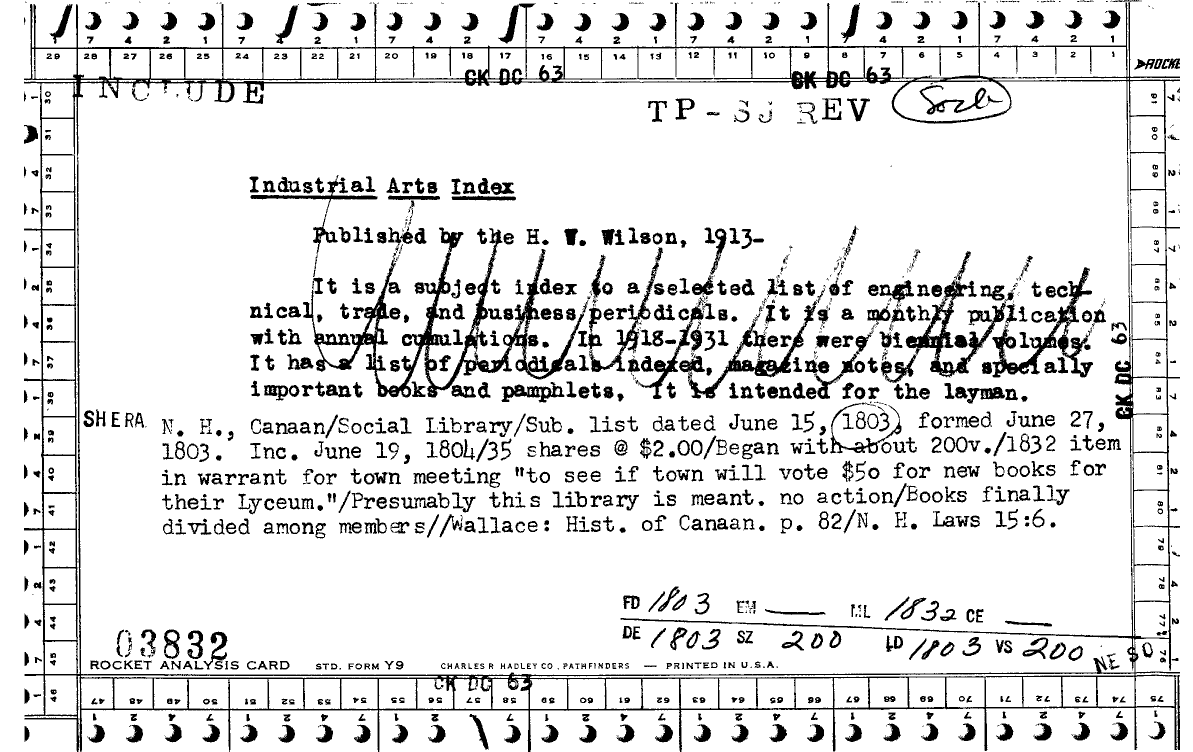 7 4 2 1 7 4 2 1 7 4 2 1 7 4 2 1 7 4 2 1 7 4 2 1 7 4 2 1
29 28 27 26 25 24 23 22 21 20 19 18 17 16 15 14 13 12 11 10 9 8 7 6 5 4 3 2 1
CK DC 63 CK DC 63 ROCKE
INCLUDE
TP-SJ REV Socl
Industrial Arts Index
Published by the H. W. Wilson, 1913-
It is a subject index to a selected list of engineering, tech-
nical, trade, and business periodicals. It is a monthly publication
with annual cumulations. In 1918-1931 there were biennial volumes.
It has a list of periodicals indexed, magazine notes, and specially
important books and pamphlets, It is intended for the layman.
CK DC 63
SHERA N. H., Canaan/Social Library/Sub. list dated June 15, 1803, formed June 27,
1803. Inc. June 19, 1804/35 shares @ $2.00/Began with about 200v./1832 item
in warrant for town meeting "to see if town will vote $50 for new books for
their Lyceum."/Presumably this library is meant. no action/Books finally
divided among members//Wallace: Hist. of Canaan. p. 82/N. H. Laws 15:6.
FD 1803 EM ___ ML 1832 CE ___
DE 1803 SZ 200 LD 1803 VS 200 NE 50
03832
ROCKET ANALYSIS CARD STD. FORM Y9 CHARLES R HADLEY CO., PATHFINDERS — PRINTED IN U.S.A.
CK DC 63
47 48 49 50 51 52 53 54 55 56 57 58 59 60 61 62 63 64 65 66 67 68 69 70 71 72 73 74 75
30 31 32 33 34 35 36 37 38 39 40 41 42 43 44 45 46
91 90 89 88 87 86 85 84 83 82 81 80 79 78 77 76